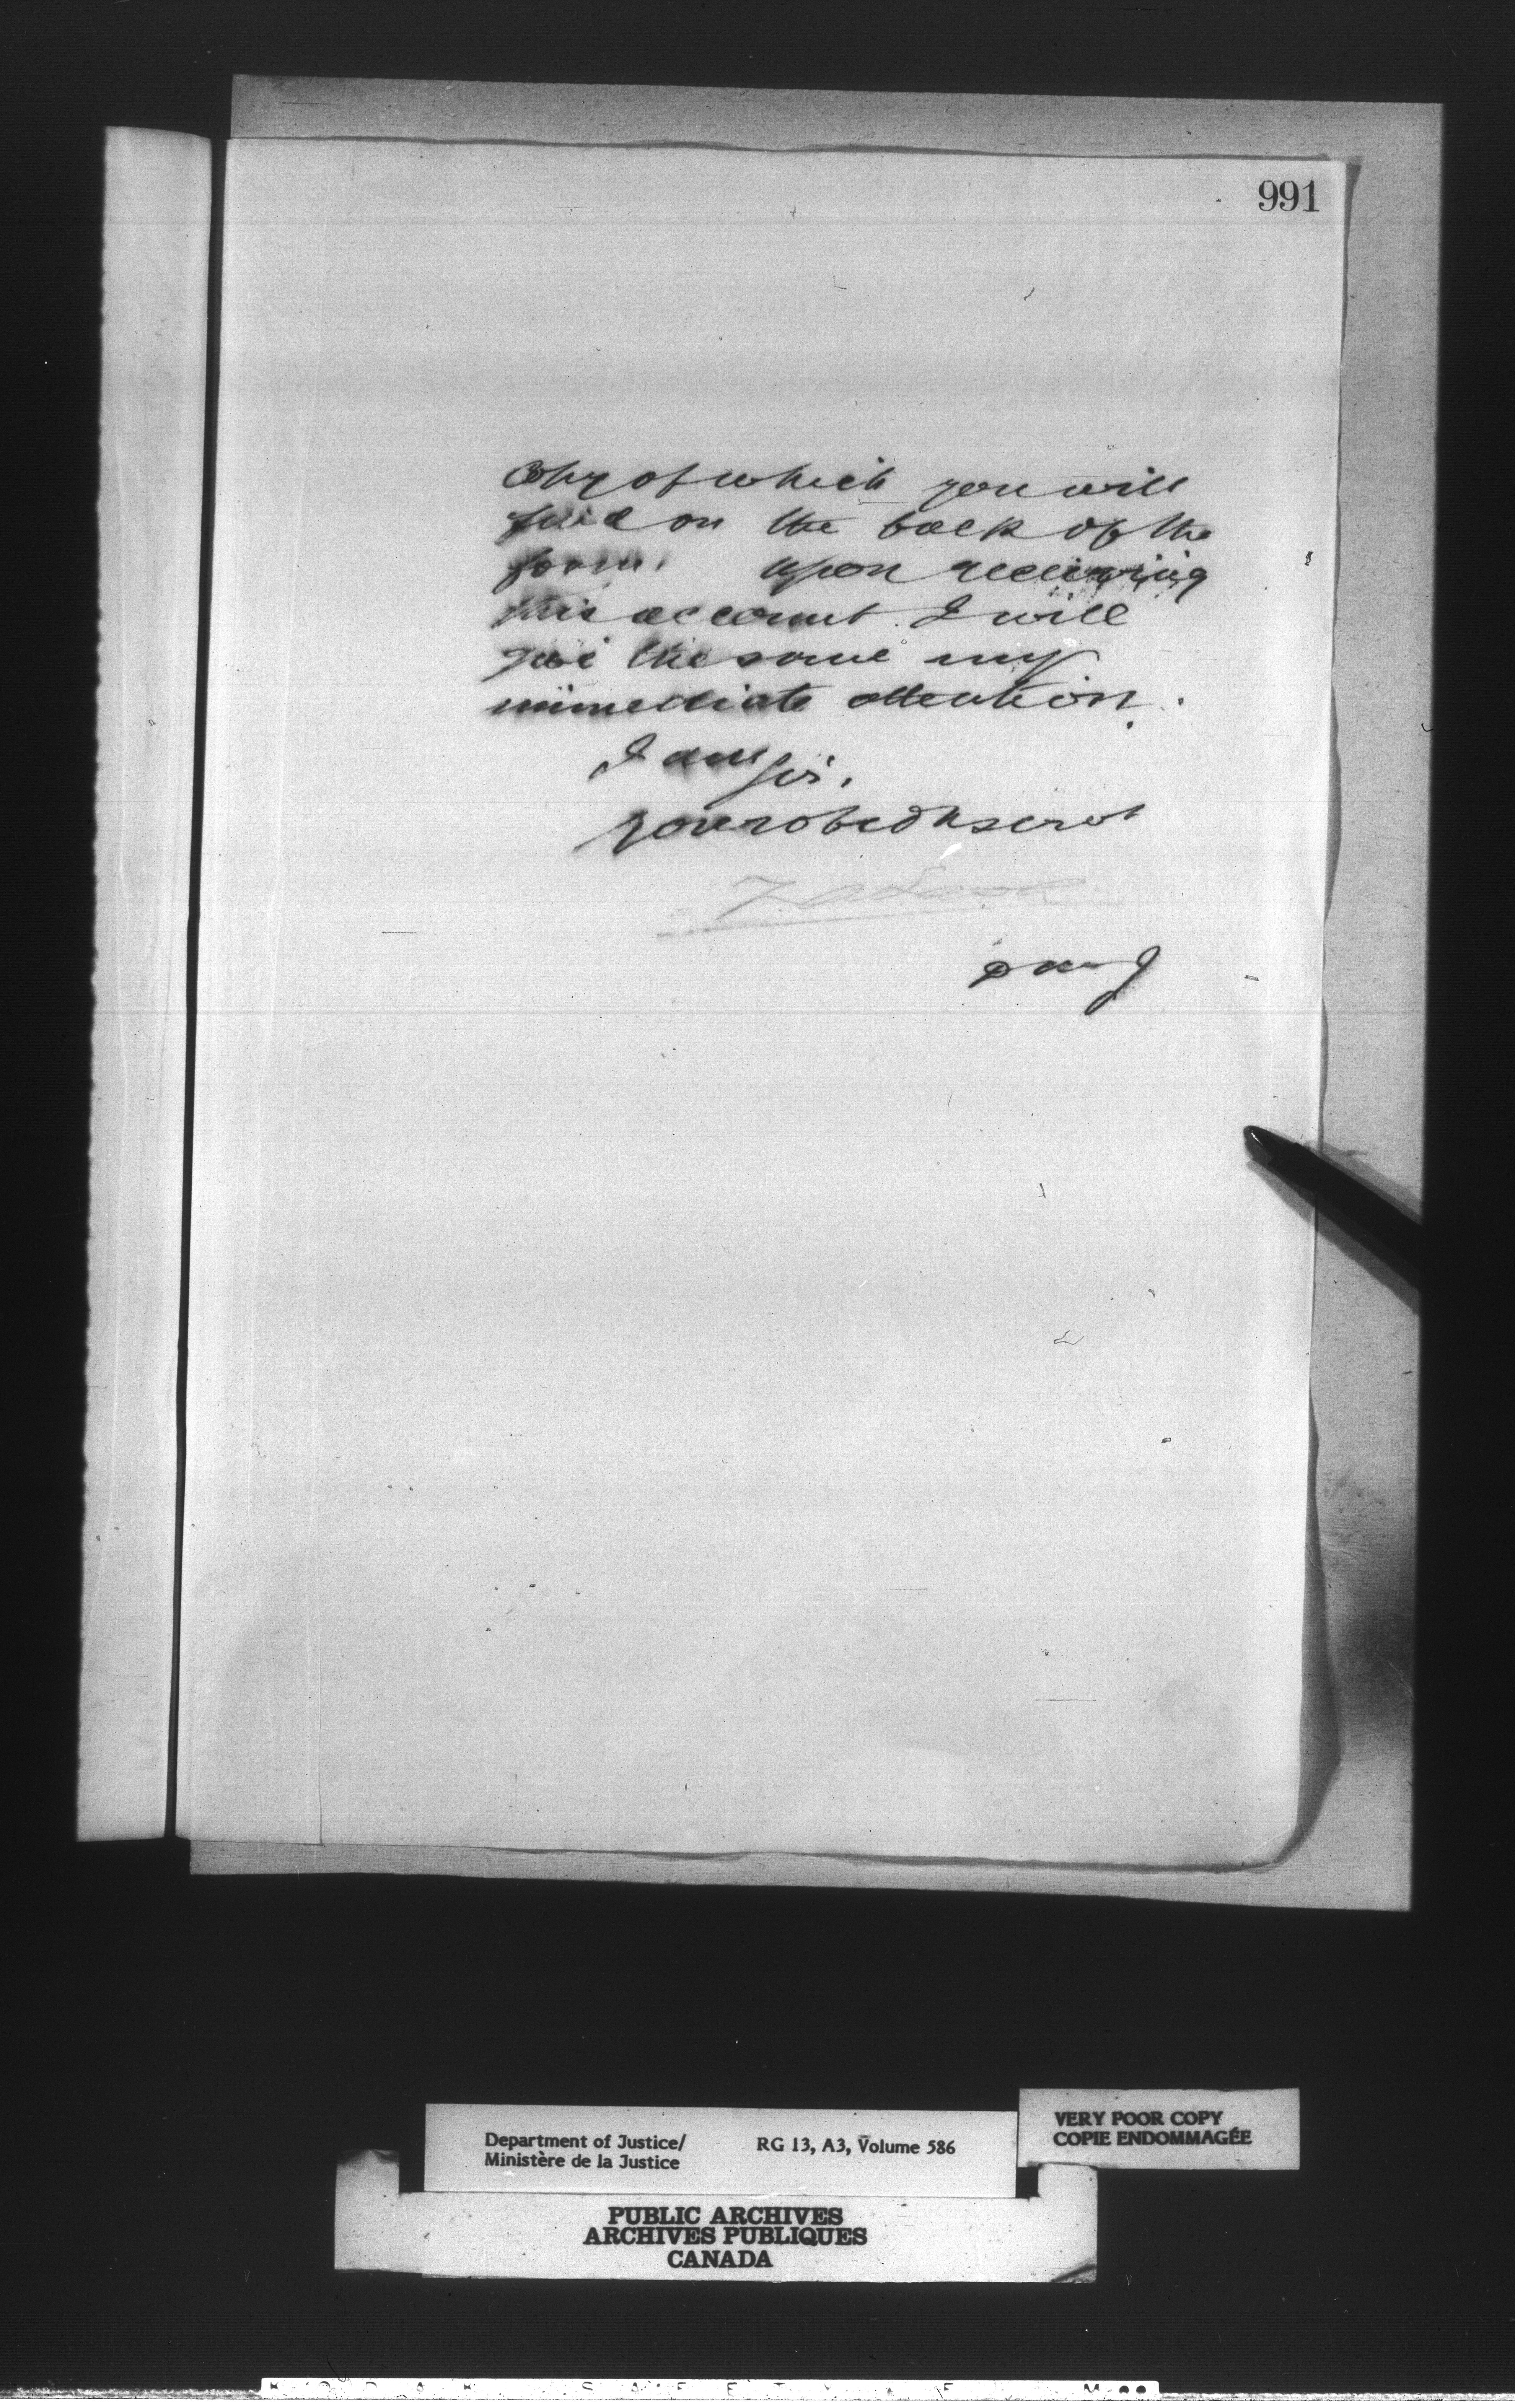 991
Copy of which you will
find on the back of the
form. upon receiving
this account I will
give the same my
immediate attention.
I am Sir,
Your obedt servt
D M J
Department of Justice/
Ministère de la Justice
RG 13, A3, Volume 586
VERY POOR COPY
COPIE ENDOMMAGÉE
PUBLIC ARCHIVES
ARCHIVES PUBLIQUES
CANADA